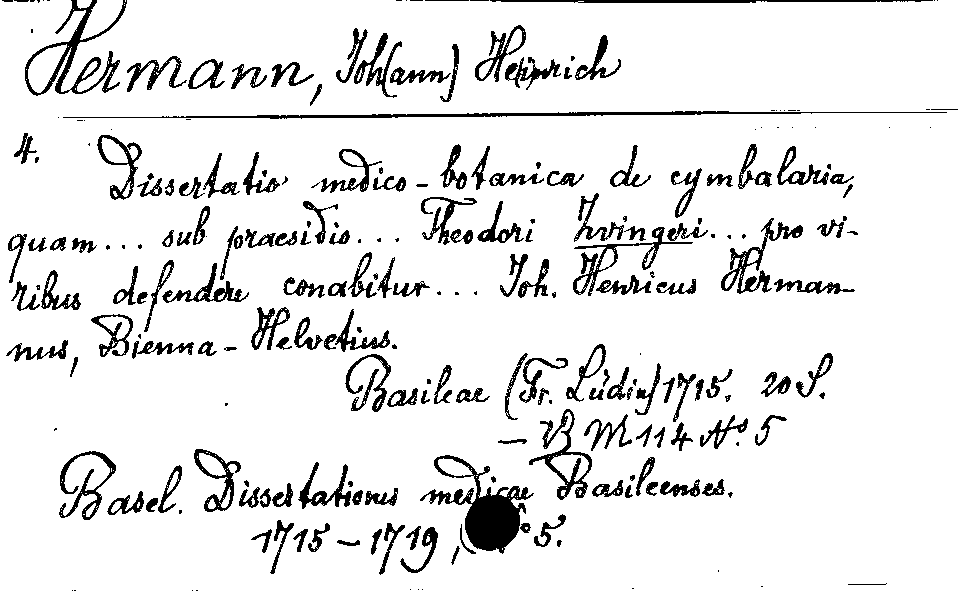 Hermann, Joh(ann) He(i)nrich
4.
Dissertatio medico-botanica de cymbalaria,
quam... sub praesidio... Theodori Zvingeri... pro vi-
ribus defendere conabitur... Joh. Henricus Herman-
nus, Bienna-Helvetius.
Basileae (Fr. Lüdin) 1715. 20 S.
- B M 114 No. 5
Basel. Dissertationes medicae Basileenses.
1715-1719, 5.